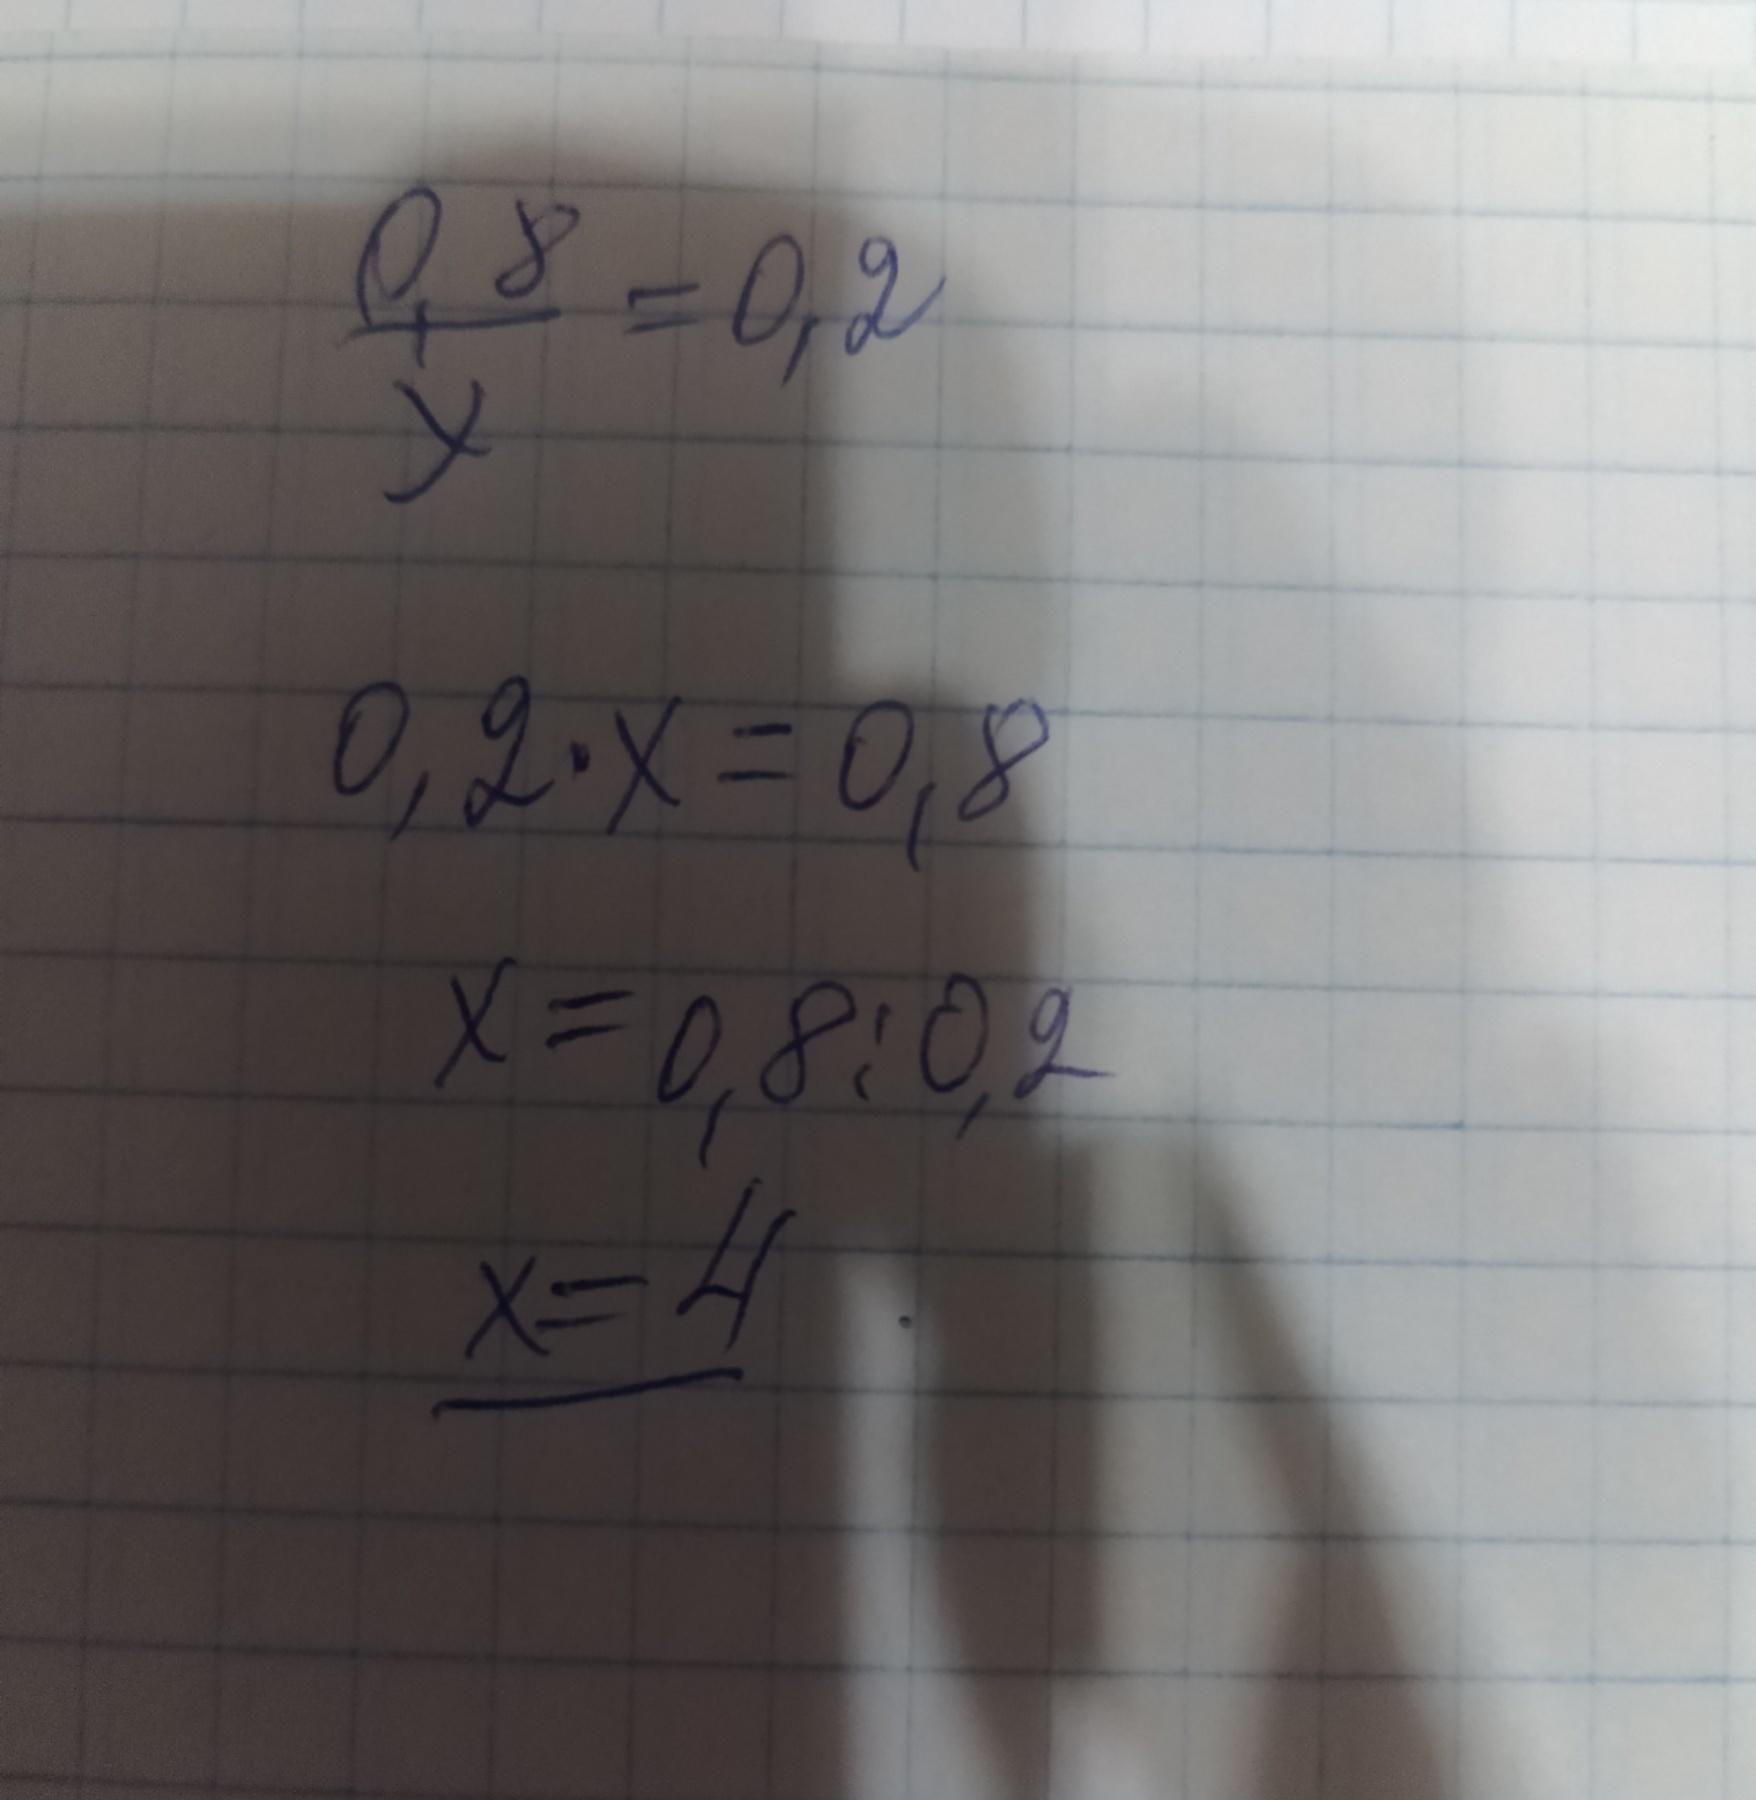 0,8/x = 0,2
0,2·x = 0,8
x = 0,8:0,2
x = 4